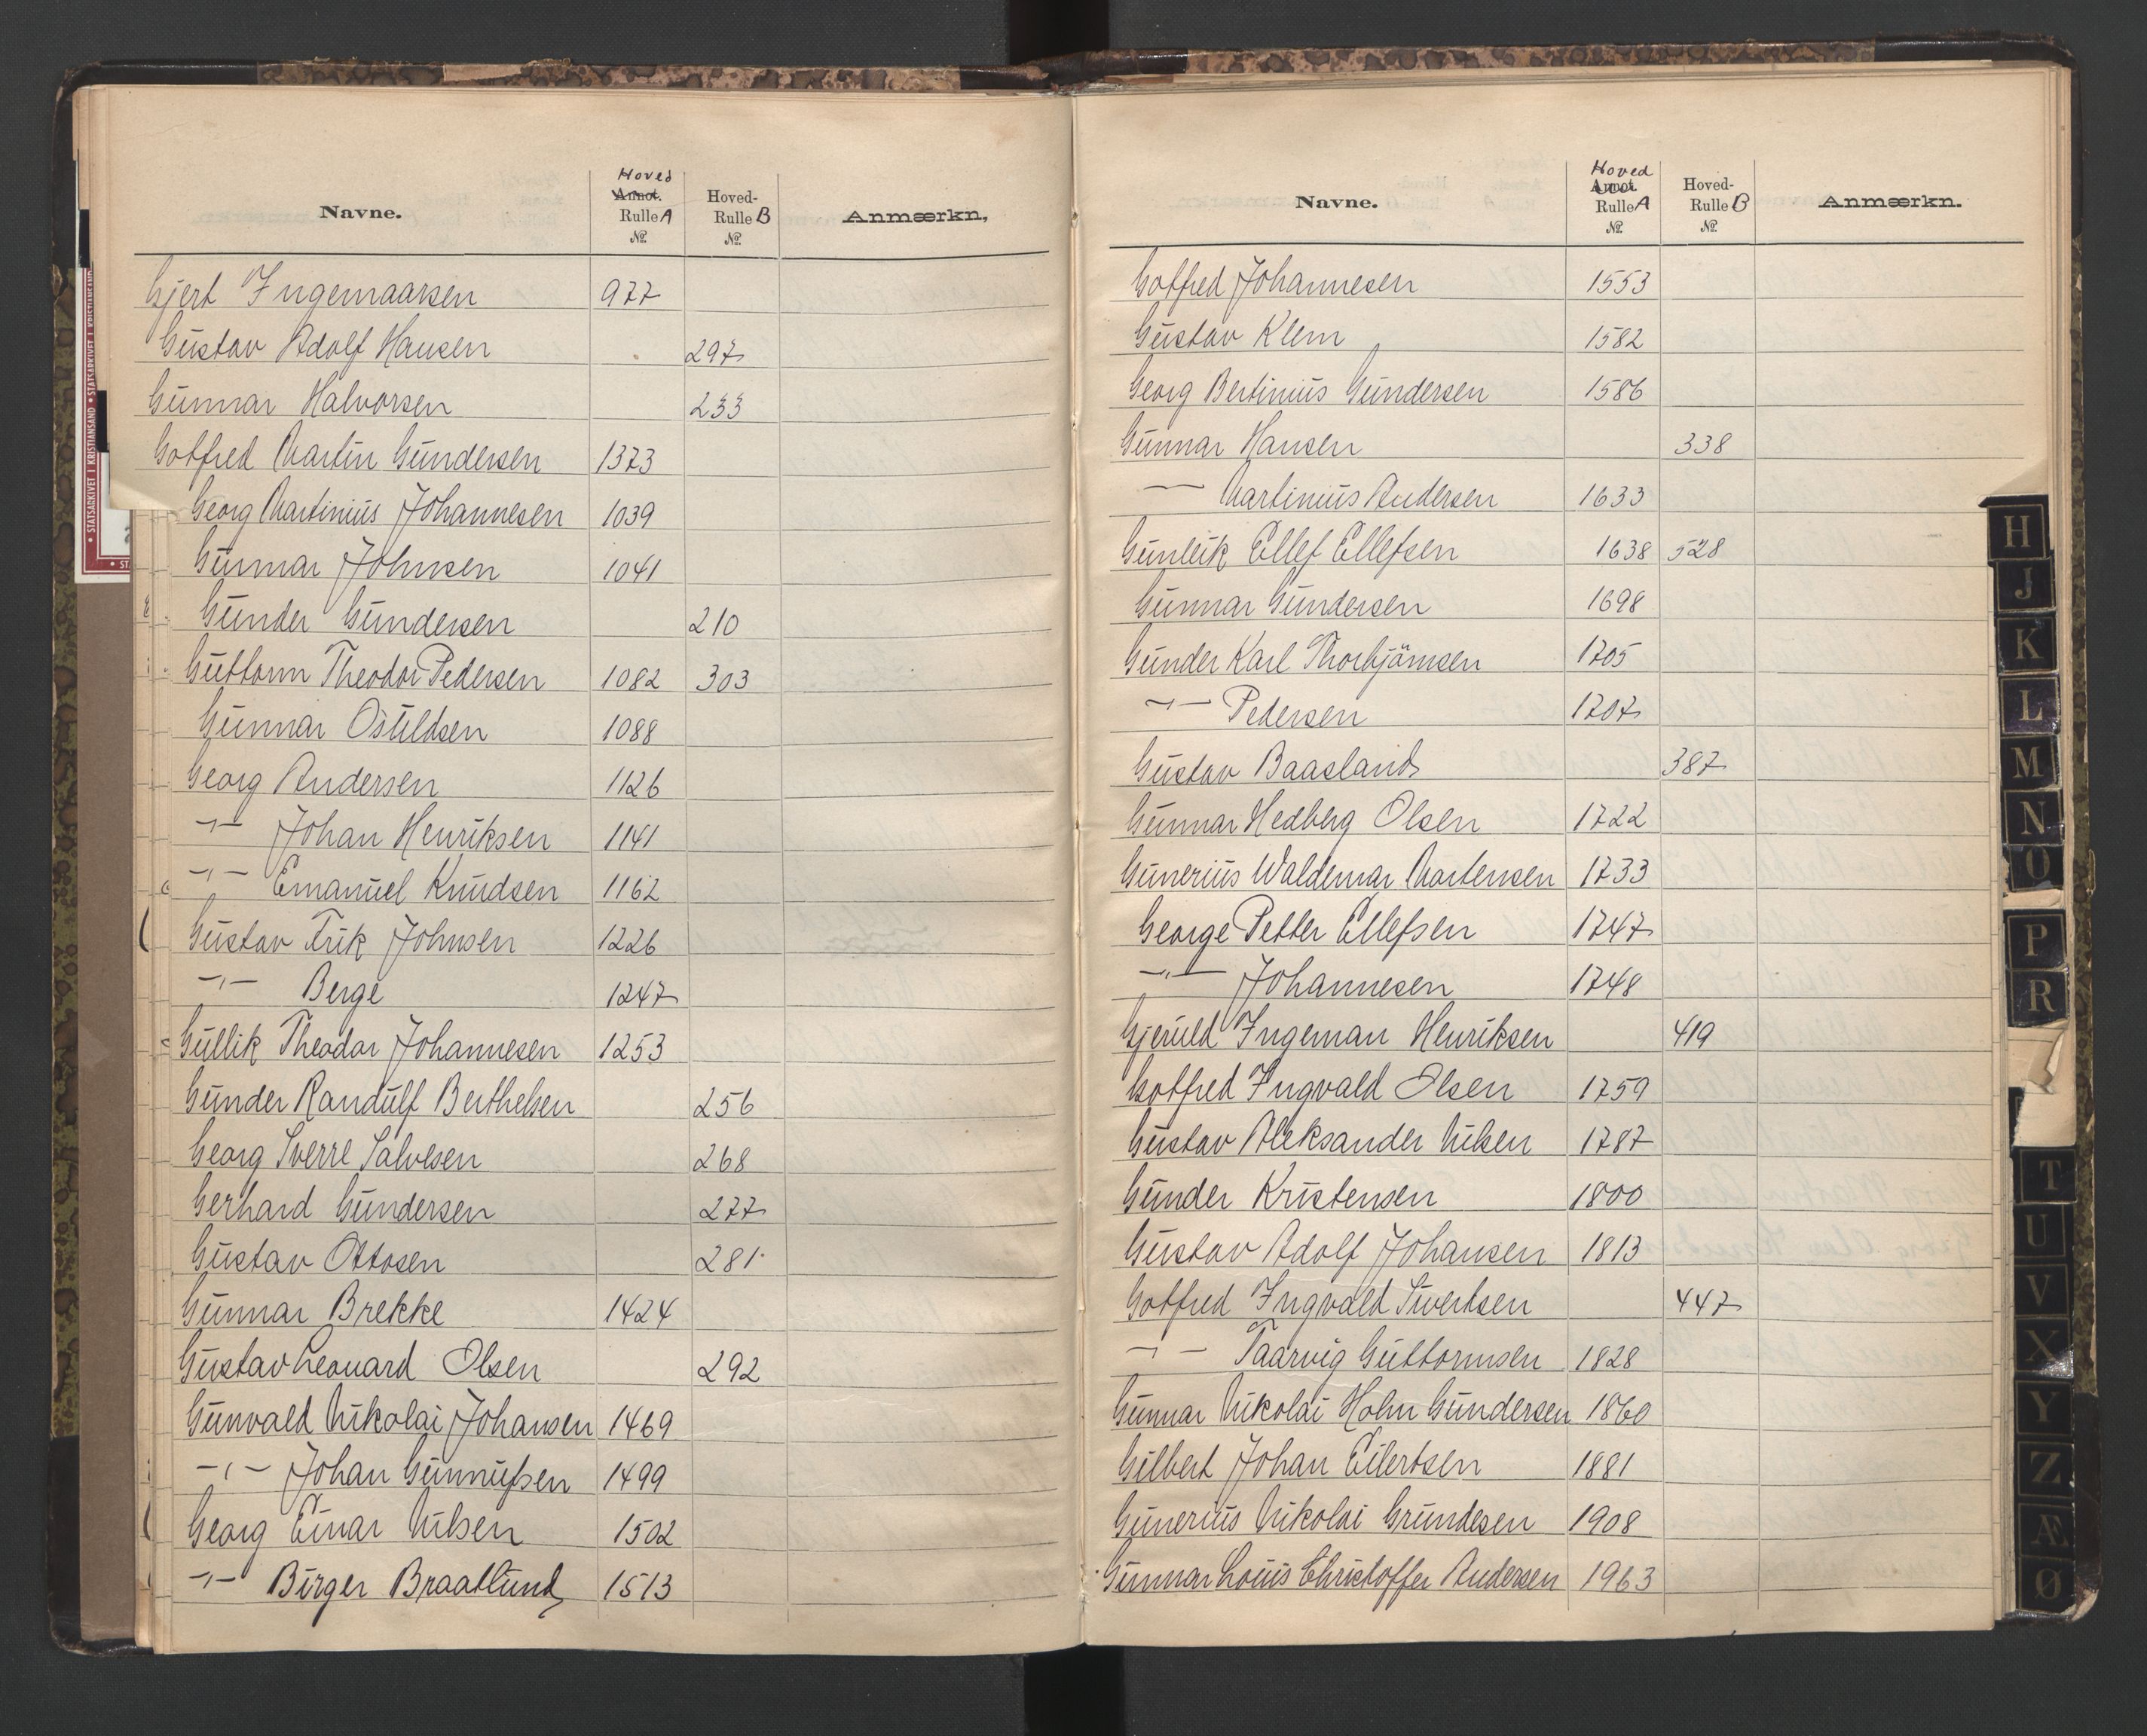 Navne.
Hoved
Annot.
Rulle A
№
Hoved-
Rulle B
№
Anmærkn,
Gjert Ingemaarsen 977
Gustav Adolf Hansen 297
Gunnar Halvorsen 233
Gotfred Martin Gundersen 1373
Georg Martinius Johannesen 1039
Gunnar Johnsen 1041
Gunder Gundersen 210
Guttorm Theodor Pedersen 1082 303
Gunnar Osuldsen 1088
Georg Andersen 1126
-"- Johan Henriksen 1141
-"- Emanuel Knudsen 1162
Gustav Erik Johnsen 1226
-"- Berge 1247
Gullik Theodor Johannesen 1253
Gunder Randulf Berthelsen 256
Georg Sverre Salvesen 268
Gerhard Gundersen 277
Gustav Ottosen 281
Gunnar Brekke 1424
Gustav Leonard Olsen 292
Gunvald Nikolai Johansen 1469
-"- Johan Gunnufsen 1499
Georg Einar Nilsen 1502
-"- Birger Braatlund 1513
Navne.
Hoved
Annot.
Rulle A
№
Hoved-
Rulle B
№
Anmærkn.
Gotfred Johannesen 1553
Gustav Klem 1582
Georg Bertinius Gundersen 1586
Gunnar Hansen 338
— Martinius Andersen 1633
Gunleik Ellef Ellefsen 1638 528
Gunnar Gundersen 1698
Gunder Karl Thorbjörnsen 1705
-"- Pedersen 1707
Gustav Baasland 387
Gunnar Hedberg Olsen 1722
Gunerius Waldemar Mortensen 1733
George Petter Ellefsen 1747
-"- Johannesen 1748
Gjeruld Ingeman Henriksen 419
Gotfred Ingvald Olsen 1759
Gustav Aleksander Nilsen 1787
Gunder Kristensen 1800
Gustav Adolf Johansen 1813
Gotfred Ingvald Sivertsen 447
-"- Taarvig Guttormsen 1828
Gunnar Nikolai Holm Gundersen 1860
Gilbert Johan Eilertsen 1881
Gunerius Nikolai Grundesen 1908
Gunnar Louis Christoffer Andersen 1963
H
J
K
L
M
N
O
P
R
T
U
V
X
Y
Z
Æ
Ø
STATSARKIVET I KRISTIANSAND • STATSARKIVET I KRISTIANSAND